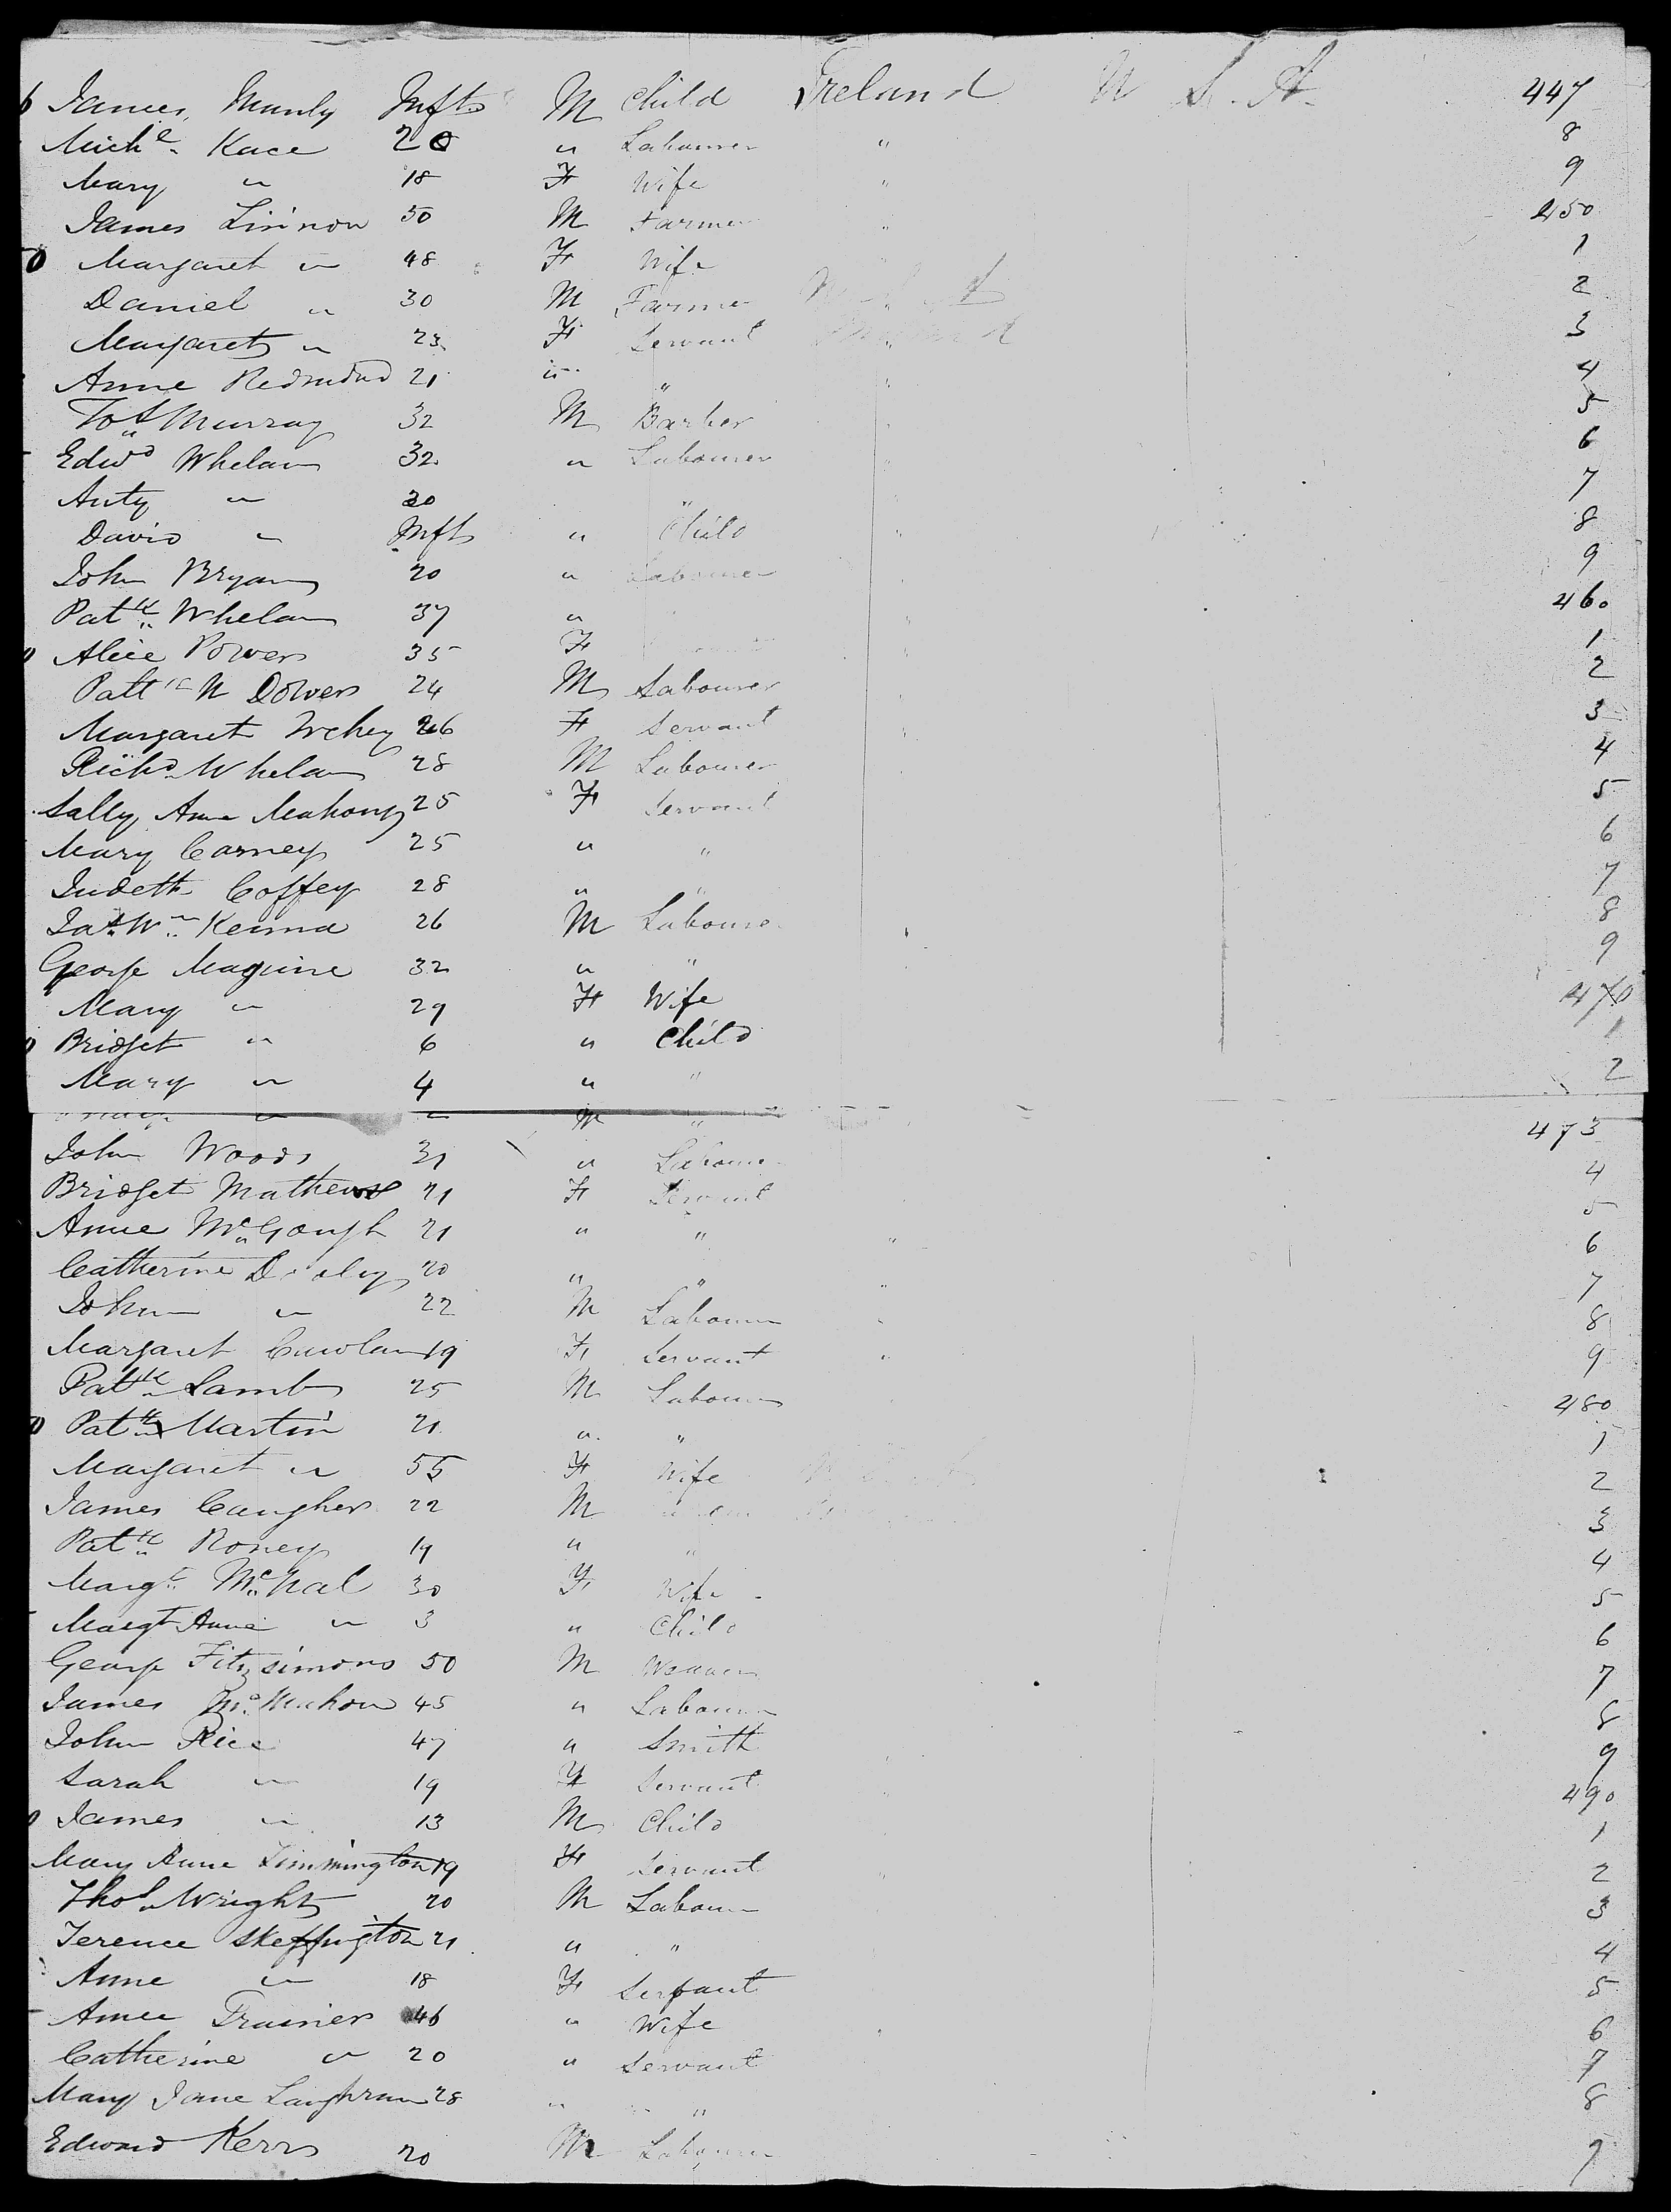 6 James Munly Inft M Child Ireland U S. A. 447
Michl. Kace 20 " Labourer " 8
Mary " 18 F Wife " 9
James Linnon 50 M Farmer " 450
0 Margaret " 48 F Wife 1
Daniel " 30 M Farmer 2
Margaret " 23 F Servant " 3
Anne Redmond 21 " " " 4
Murray 32 M Barber 5
Edwd Whelan 32 " Labourer 6
Anty " 30 " 7
David " Inft " Child 8
John Bryan 20 " Labourer 9
Patk. Whelan 37 " 460
0 Alice Powers 35 F 1
Pattk N Dowers 24 M Labourer 2
Margaret 26 F Servant 3
Richd. Whelan 28 M Labourer 4
Sally Ann Mahony 25 F Servant 5
Mary Carney 25 " " 6
Judeth Coffey 28 " " 7
Jas. Wm. Kenna 26 M Labourer 8
George Maguire 32 " " 9
Mary " 29 F Wife 470
0 Bridget " 6 " Child 1
Mary " 4 " " 2
" " M " 473
John Woods 31 " Labourer 4
Bridget Mathews 21 F Servant 5
Anne McGough 21 " " " 6
Catherine Daly 20 " " " 7
John " 22 M Labourer 8
Margaret 19 F Servant " 9
Patk. Lamb 25 M Labourer 480
0 Patk. Martin 21 " " 1
Margaret " 55 F Wife 2
James Caugher 22 M 3
Patk. Roney 19 " " 4
Margt. McNal 30 F Wife 5
Margt Anne " 3 " Child 6
George Fitzsimons 50 M Weaver 7
James McMahon 45 " Labourer 8
John Rice 47 " Smith 9
Sarah " 19 F Servant 490
0 James " 13 M Child 1
Mary Anne Limmington 19 F Servant 2
Thos. Wright 20 M Labourer 3
Terence Skeffington 21 " " 4
Anne " 18 F Servant 5
Anne Trainer 46 " Wife 6
Catherine " 20 " Servant 7
Mary Jane Laughran 28 " " 8
Edward Kerr 20 M Labourer 9